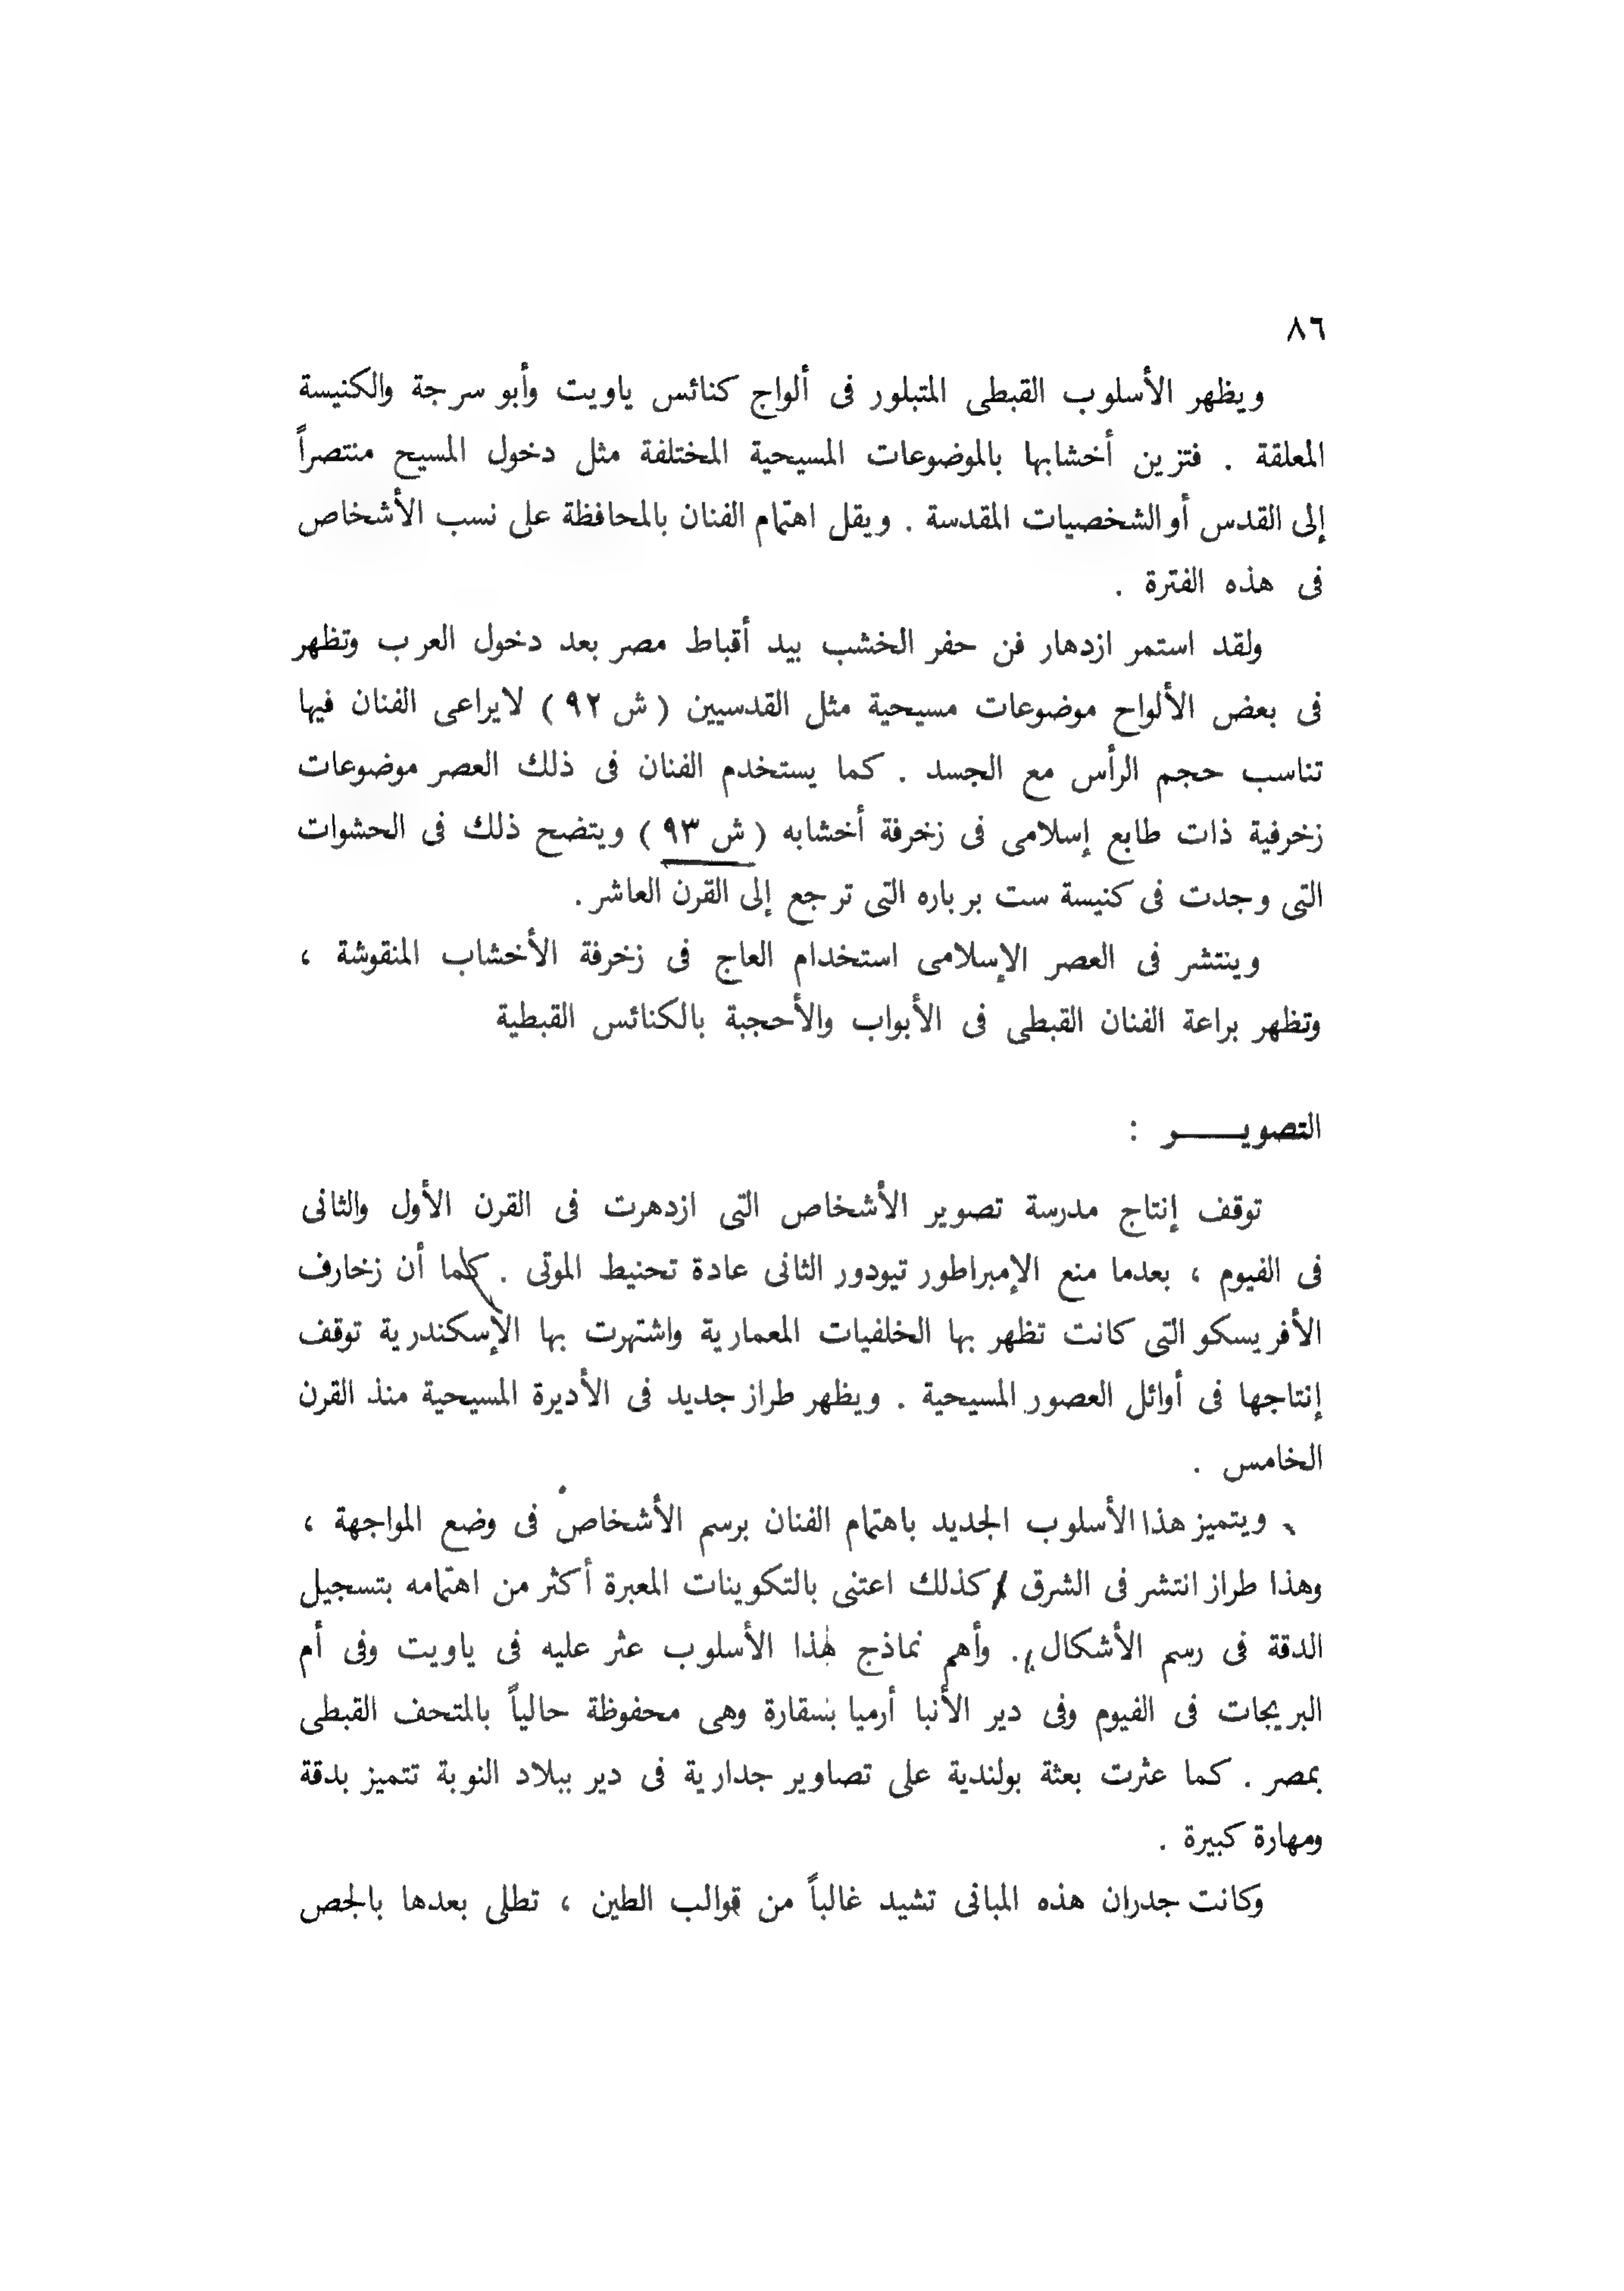 ٨٦
ويظهر الأسلوب القبطى المتبلور فى ألواح كنائس ياويت وأبو سرجة والكنيسة
المعلقة . فتزين أخشابها بالموضوعات المسيحية المختلفة مثل دخول المسيح منتصراً
إلى القدس أو الشخصيات المقدسة . ويقل اهتمام الفنان بالمحافظة على نسب الأشخاص
فى هذه الفترة .
ولقد استمر ازدهار فن حفر الخشب بيد أقباط مصر بعد دخول العرب وتظهر
فى بعض الألواح موضوعات مسيحية مثل القدسيين ( ش ٩٢ ) لايراعى الفنان فيها
تناسب حجم الرأس مع الجسد . كما يستخدم الفنان فى ذلك العصر موضوعات
زخرفية ذات طابع إسلامى فى زخرفة أخشابه ( ش ٩٣ ) ويتضح ذلك فى الحشوات
التى وجدت فى كنيسة ست برباره التى ترجع إلى القرن العاشر .
وينتشر فى العصر الإسلامى استخدام العاج فى زخرفة الأخشاب المنقوشة ،
وتظهر براعة الفنان القبطى فى الأبواب والأحجبة بالكنائس القبطية
التصويـــــر :
توقف إنتاج مدرسة تصوير الأشخاص التى ازدهرت فى القرن الأول والثانى
فى الفيوم ، بعدما منع الإمبراطور تيودور الثانى عادة تحنيط الموتى . كما أن زخارف
الأفريسكو التى كانت تظهر بها الخلفيات المعمارية واشتهرت بها الإسكندرية توقف
إنتاجها فى أوائل العصور المسيحية . ويظهر طراز جديد فى الأديرة المسيحية منذ القرن
الخامس .
ويتميز هذا الأسلوب الجديد باهتمام الفنان برسم الأشخاص فى وضع المواجهة ،
وهذا طراز انتشر فى الشرق كذلك اعتنى بالتكوينات المعبرة أكثر من اهتمامه بتسجيل
الدقة فى رسم الأشكال . وأهم نماذج هذا الأسلوب عثر عليه فى ياويت وفى أم
البريجات فى الفيوم وفى دير الأنبا أرميا بسقارة وهى محفوظة حالياً بالمتحف القبطى
بمصر . كما عثرت بعثة بولندية على تصاوير جدارية فى دير ببلاد النوبة تتميز بدقة
ومهارة كبيرة .
وكانت جدران هذه المبانى تشيد غالباً من قوالب الطين ، تطلى بعدها بالجص